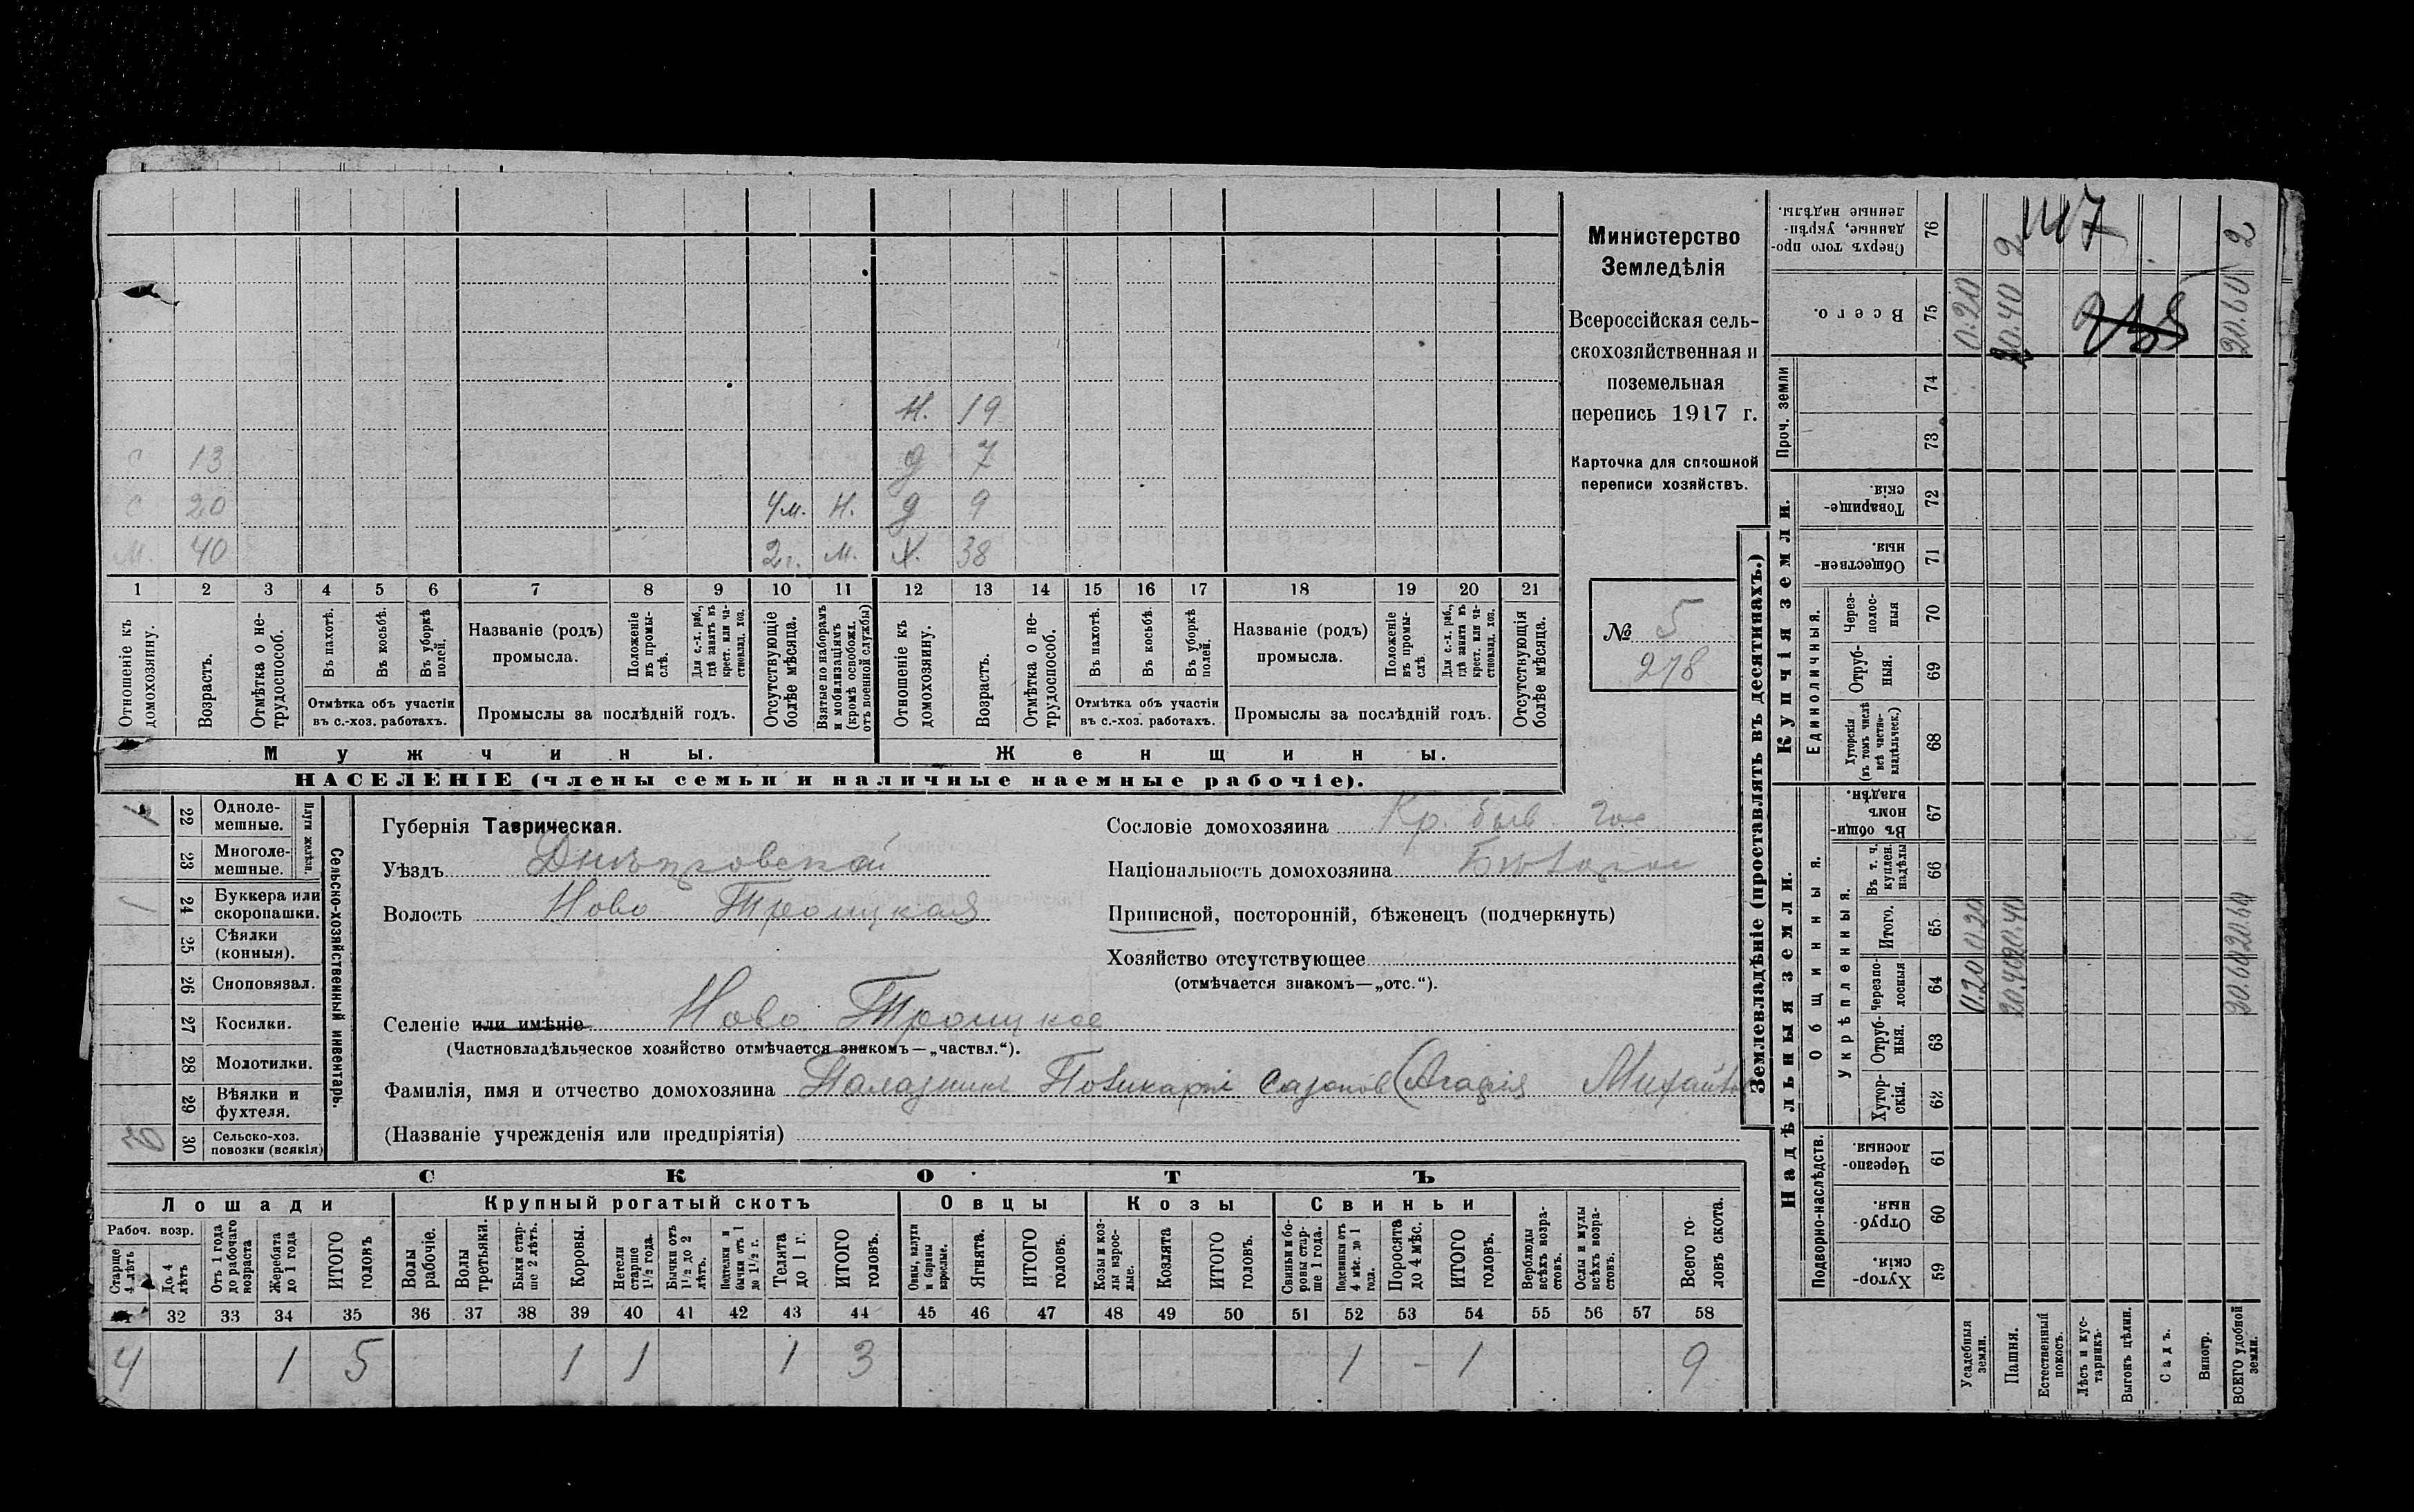 Министерство
Земледѣлія
Всероссійская сель-
скохозяйственная и
поземельная
перепись 1917 г.
Карточка для сплошной
переписи хозяйствъ.
№ 5
278
Н. 19
С 13 д 7
С 20 4 м. Н. д 9
М. 40 2 г. М. Х. 38
1 2 3 4 5 6 7 8 9 10 11 12 13 14 15 16 17 18 19 20 21
Отношеніе къ домохозяину.
Возрастъ.
Отмѣтка о не-трудоспособ.
Въ пахотѣ.
Въ косьбѣ.
Въ уборкѣ полей.
Отмѣтка объ участіи
въ с.-хоз. работахъ.
Названіе (родъ)
промысла.
Положеніе въ промы-слѣ.
Для с.-х. раб., гдѣ занятъ въ крест. или ча-стновлад. хоз.
Промыслы за послѣдній годъ.
Отсутствующіе болѣе мѣсяца.
Взятые по наборамъ и мобилизаціямъ (кромѣ освобожд. отъ военной службы)
Отношеніе къ домохозяину.
Возрастъ.
Отмѣтка о не-трудоспособ.
Въ пахотѣ.
Въ косьбѣ.
Въ уборкѣ полей.
Отмѣтка объ участіи
въ с.-хоз. работахъ.
Названіе (родъ)
промысла.
Положеніе въ промы-слѣ
Для с.-х. раб., гдѣ занята въ крест. или ча-стновлад. хоз.
Промыслы за послѣдній годъ.
Отсутствующія болѣе мѣсяца.
Мужчины. Женщины.
НАСЕЛЕНІЕ (члены семьи и наличные наемные рабочіе).
Сельско-хозяйственный инвентарь.
Плуги желѣзн.
22 Одноле-мешные.
23 Многоле-мешные.
1 24 Буккера или скоропашки.
25 Сѣялки (конныя).
26 Сноповязал.
27 Косилки.
28 Молотилки.
29 Вѣялки и фухтеля.
30 Сельско-хоз. повозки (всякія)
Губернія Таврическая.
Уѣздъ Днѣпровскій
Волость Ново Троицкая
Селеніе или имѣніе Ново Троицкое
(Частновладѣльческое хозяйство отмѣчается знакомъ—„частвл.“).
Сословіе домохозяина Кр. быв. гос
Національность домохозяина Бѣлорос
Приписной, посторонній, бѣженецъ (подчеркнуть)
Хозяйство отсутствующее
(отмѣчается знакомъ—„отс.“).
Фамилія, имя и отчество домохозяина Паладник Поликарп Сазонов (Агафия
(Названіе учрежденія или предпріятія)
СКОТЪ
Лошади Крупный рогатый скотъ Овцы Козы Свиньи
Рабоч. возр.
Старше 4 лѣтъ
До 4 лѣтъ
Отъ 1 года до рабочаго возраста
Жеребята до 1 года
ИТОГО головъ
Волы рабочіе.
Волы третьяки.
Быки стар-ше 2 лѣтъ.
Коровы.
Нетели старше 1½ года.
Бычки отъ 1½ до 2 лѣтъ.
Подтелки и бычки отъ 1 до 1½ г.
Телята до 1 г.
ИТОГО головъ.
Овцы, валухи и бараны взрослые.
Ягнята.
ИТОГО головъ.
Козы и коз-лы взрос-лые.
Козлята
ИТОГО головъ.
Свиньи и бо-ровы стар-ше 1 года.
Подсвинки отъ 4 мѣс. до 1 года.
Поросята до 4 мѣс.
ИТОГО головъ.
Верблюды всѣхъ возра-стовъ.
Ослы и мулы всѣхъ возра-стовъ.
Всего го-ловъ скота.
32 33 34 35 36 37 38 39 40 41 42 43 44 45 46 47 48 49 50 51 52 53 54 55 56 57 58
4 1 5 1 1 1 3 1 - 1 9
Землевладѣніе (проставлять въ десятинахъ.)
Надѣльныя земли. Купчія земли. Проч. земли
Подворно-наслѣдств. Общинныя. Единоличныя.
Укрѣпленныя.
Хутор-скія. 59
Отруб-ныя. 60
Черезпо-лосныя 61
Хутор-скія. 62
Отруб-ныя. 63
Черезпо-лосныя 64
Итого. 65
Въ т. ч. куплен. надѣлы 66
Въ общи-номъ владѣн. 67
Хуторскія (въ томъ числѣ всѣ частно-владѣльческ.) 68
Отруб-ныя. 69
Через-полос-ныя 70
Обществен-ныя. 71
Товарище-скія. 72
73
74
Всего. 75
Сверхъ того про-данные, укрѣп-ленные надѣлы. 76
Усадебныя земли. 0.20 0.20 0.20
Пашня. 20.40 20.40 20.40 2
Естественный покосъ.
Лѣсъ и кус-тарникъ.
Выгонъ цѣлин.
Садъ.
Виногр.
ВСЕГО удобной земли. 20.60 20.60 20.60 2